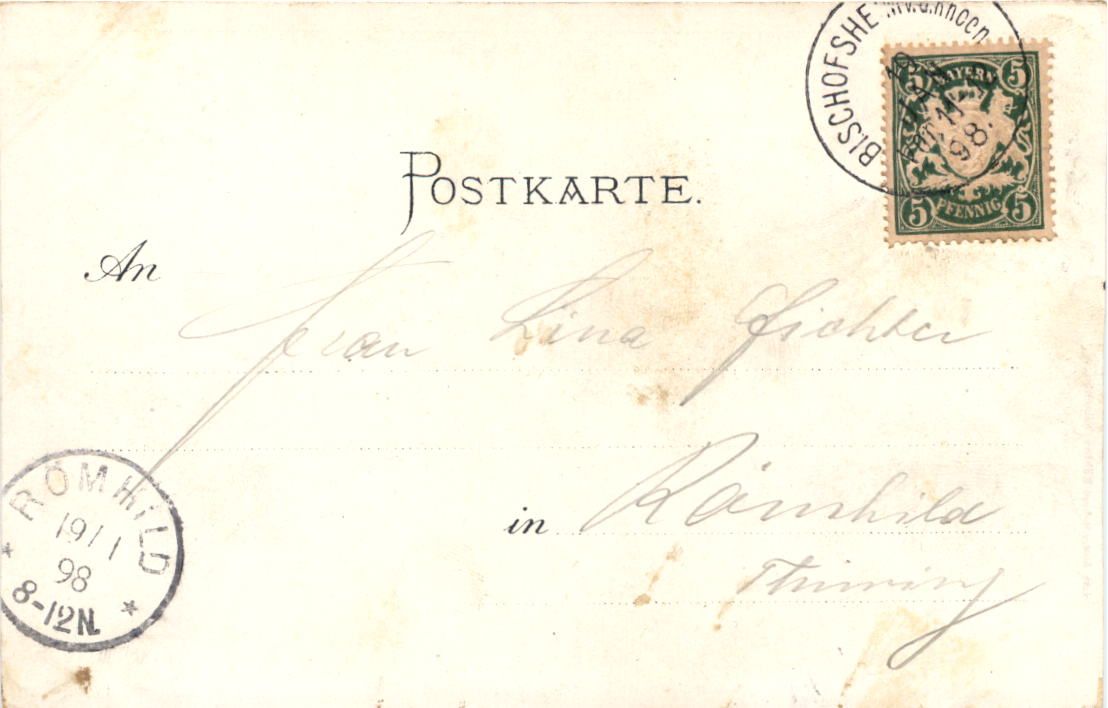 BISCHOFSHEIM v.d.Rhoen
JAN
98.
5 BAYERN 5
5 PFENNIG 5
POSTKARTE.
An
Frau Lina Fichter
in Römhild
Thüring
RÖMHILD
19/1
98
8-12N.